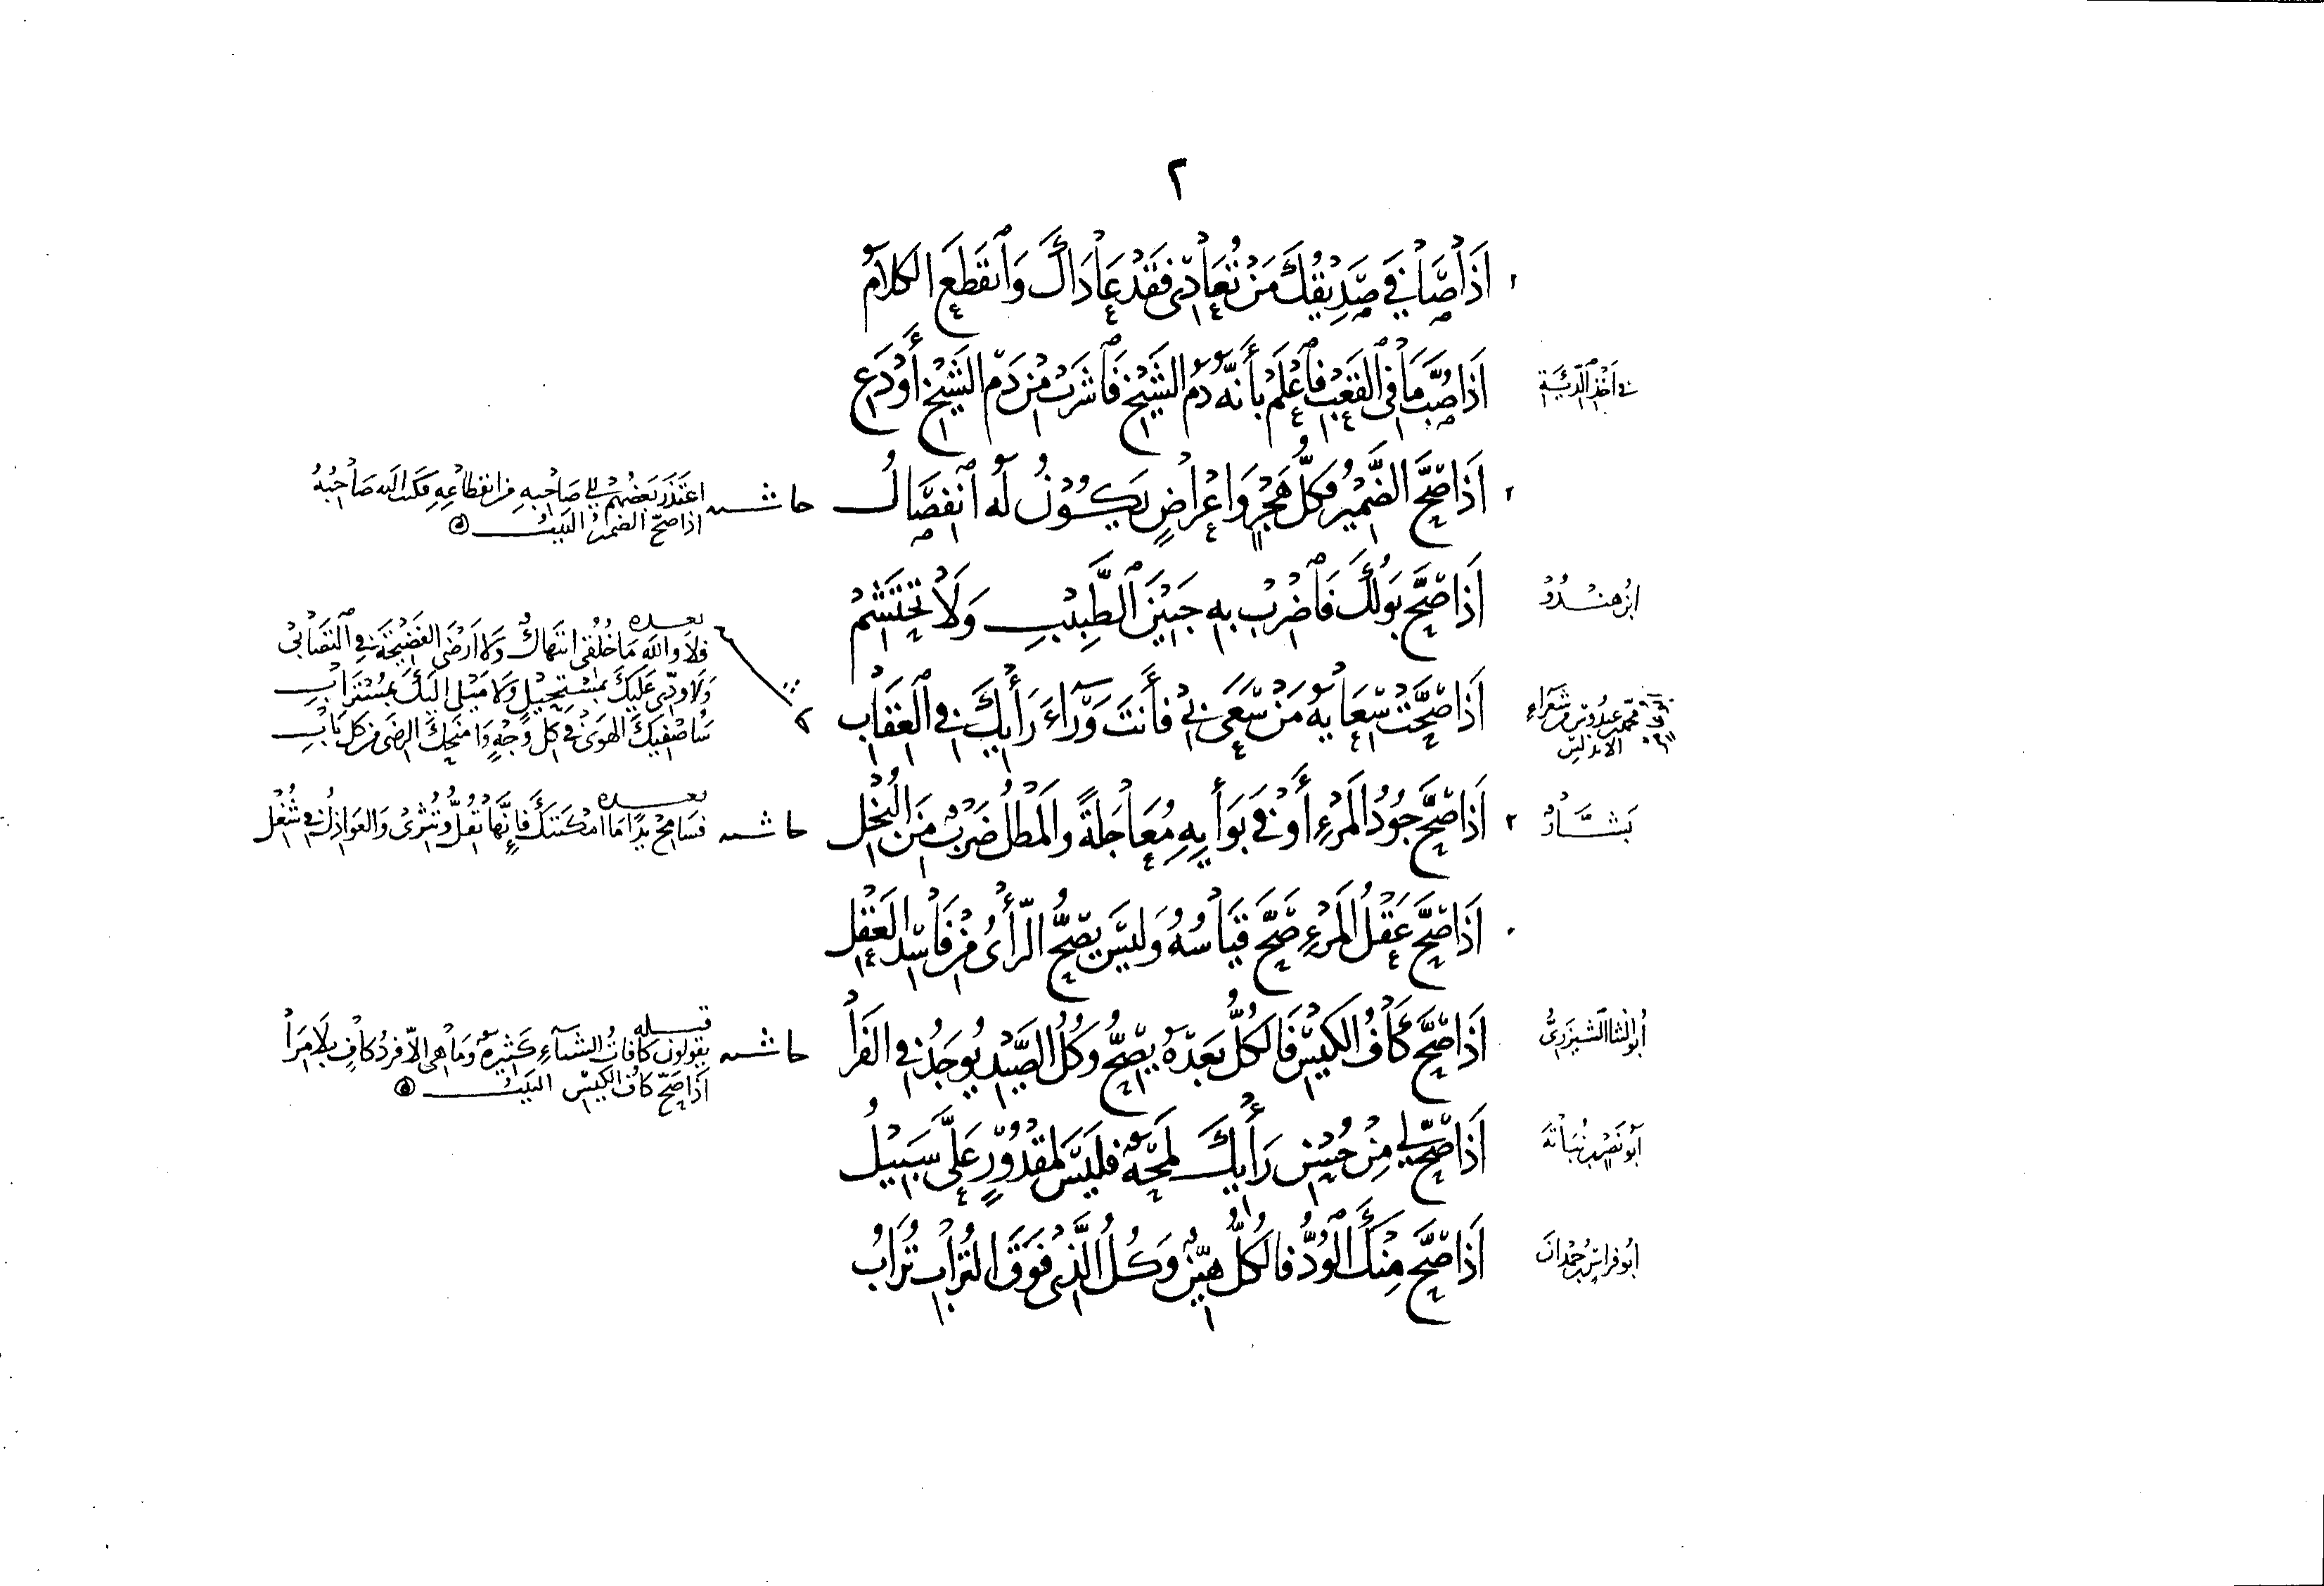 ٢
إِذَا صَافَى صَدِيقُكَ مَنْ تُعَادِى فَقَدْ عَادَاكَ وَانْقَطَعَ الكَلَامُ
فى أخذ الدية
إِذَا صُبَّ مَا فِى القَعْبِ فَاعْلَمْ بِأَنَّهُ دَمُ الشَّيْخِ فَاشْرَبْ مِنْ دَمِ الشَّيْخِ أَوْ دَعِ
إِذَا صَحَّ الضَّمِيرُ فَكُلُّ هَجْرٍ وَإِعْرَاضٍ يَكُونُ لَهُ انْفِصَالُ
حاشية اعتذر بعضهم إلى صاحبه من انقطاعه فكتب إليه صاحبه
إذا صح الضمير البيت
ابن هندو
إِذَا صَحَّ بَوْلُكَ فَاضْرِبْ بِهِ جَبِينَ الطَّبِيبِ وَلَا تَحْتَشِمْ
محمد عبدوس من شعراء
الأندلس
إِذَا صَحَّتْ سِعَايَةُ مَنْ سَعَى بِى فَأَنْتَ وَرَاءَ رَأْيِكَ فِى العِقَابِ
بعده
فلا والله ما خلقى انتهاك ولا أرضى الفضيحة فى التصابى
ولا ودى عليك بمستحيل ولا ميلى إليك بمستراب
سأصفيك الهوى فى كل وجه وأمنحك الرضى من كل باب
بَشَّارٌ
إِذَا صَحَّ جُودُ المَرْءِ أَوْفَى بَوَأْيِهِ مُعَاجَلَةً وَالمَطْلُ ضَرْبٌ مِنَ البُخْلِ
بعده
حاشية فسامح يدا ما أمكنتك فإنها تقل وتثرى والعواذل فى شغل
إِذَا صَحَّ عَقْلُ المَرْءِ صَحَّ قِيَاسُهُ وَلَيْسَ يَصِحُّ الرَّأْىُ مِنْ فَاسِدِ العَقْلِ
أبو الثنا الشيزرى
إِذَا صَحَّ كَافُ الكِيسِ فَالكُلُّ بَعْدَهُ يَصِحُّ وَكُلُّ الصَّيْدِ يُوجَدُ فِى الفَرَا
قبله
حاشية يقولون كافات الشتاء كثيرة وما هى إلا فرد كاف بلا مرا
إذا صح كاف الكيس البيت
أبو نصر بن نباتة
إِذَا صَحَّ لِى مِنْ حُسْنِ رَأْيِكَ لَمْحَةٌ فَلَيْسَ لِمَقْدُورٍ عَلَىَّ سَبِيلُ
أبو فراس بن حمدان
إِذَا صَحَّ مِنْكَ الوُدُّ فَالكُلُّ هَيِّنٌ وَكُلُّ الَّذِى فَوْقَ التُّرَابِ تُرَابُ